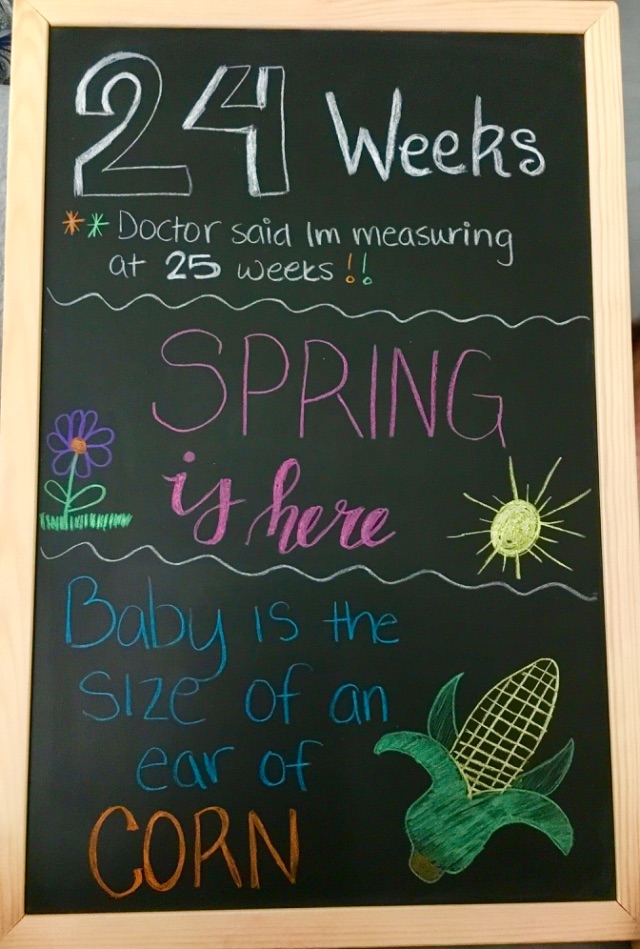 24 Weeks
** Doctor said Im measuring
at 25 weeks !!
SPRING
is here
Baby is the
size of an
ear of
CORN